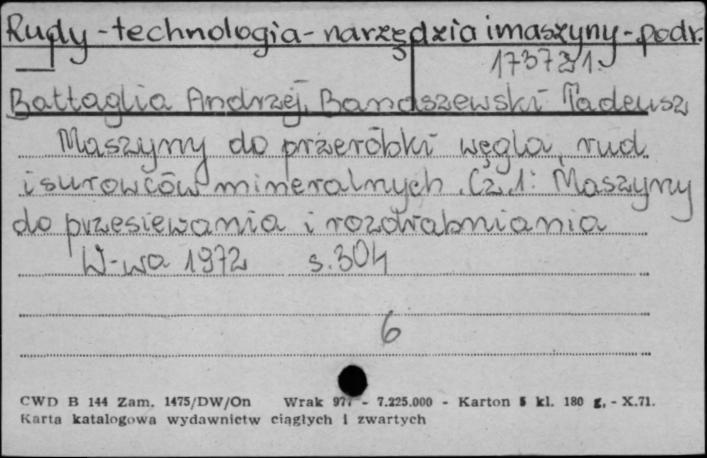 Rudy - technologia - narzędzia i maszyny - podr.
17372/1
Battaglia Andrzej, Banaszewski Tadeusz
Maszyny do przeróbki węgla, rud
i surowców mineralnych. Cz. 1: Maszyny
do przesiewania i rozdrabniania
W-wa 1972 s. 304
6
CWD B 144 Zam. 1475/DW/On Wrak 977 - 7.225.000 - Karton 5 kl. 180 g. - X.71.
Karta katalogowa wydawnictw ciągłych i zwartych